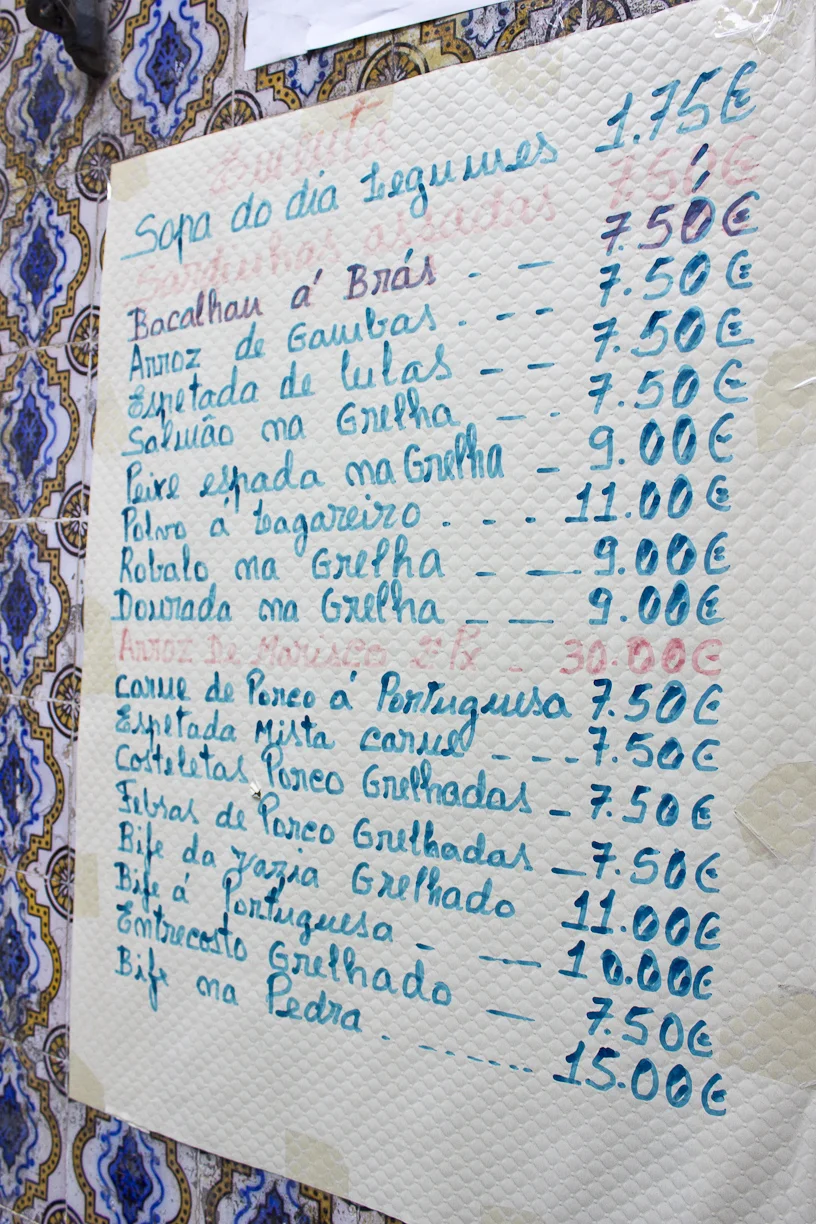 Ementa
Sopa do dia Legumes 1.75€
Sardinhas assadas 7.50€
Bacalhau á Brás . - 7.50€
Arroz de Gambas . - - 7.50€
Espetada de lulas - - 7.50€
Salmão na Grelha - . 7.50€
Peixe espada na Grelha - 9.00€
Polvo á Lagareiro . . . 11.00€
Robalo na Grelha - - 9.00€
Dourada na Grelha - - 9.00€
Arroz De Marisco 2 Px - 30.00€
carne de Porco á Portuguesa 7.50€
Espetada Mista carne - - - 7.50€
Costeletas Porco Grelhadas - 7.50€
Febras de Porco Grelhadas - 7.50€
Bife da vazia Grelhado 11.00€
Bife á Portuguesa - - 10.00€
Entrecosto Grelhado - 7.50€
Bife na Pedra . ........ 15.00€